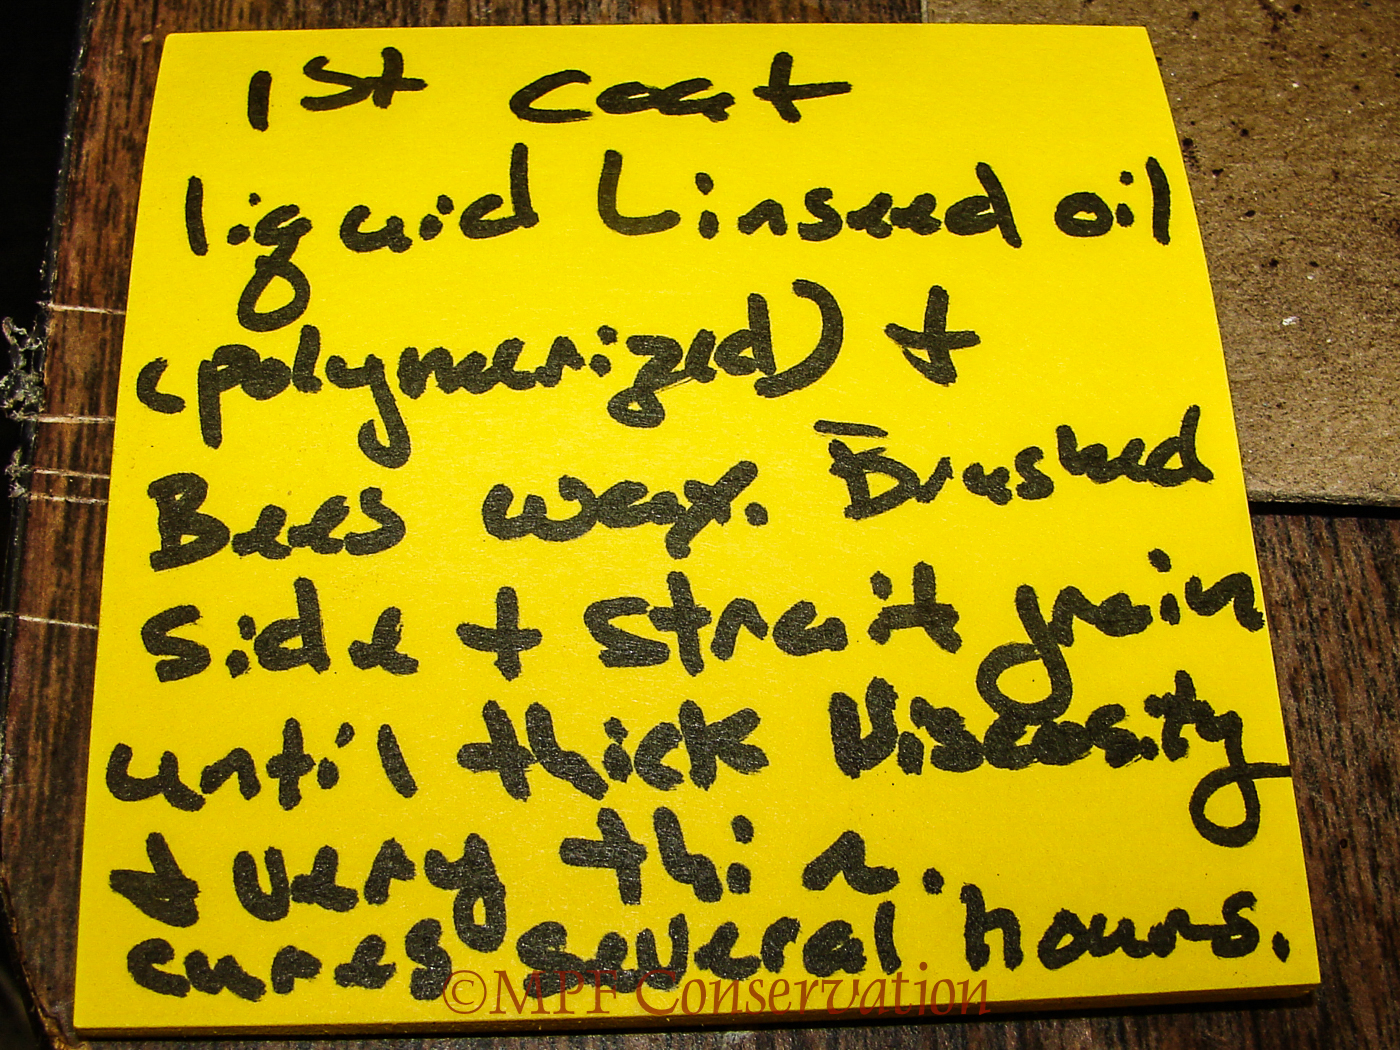 1st coat
liquid Linseed oil
(polymerized) +
Bees wax. Brushed
side + strait grain
until thick Viscosity
+ very thin.
cures several hours.
©MPF Conservation